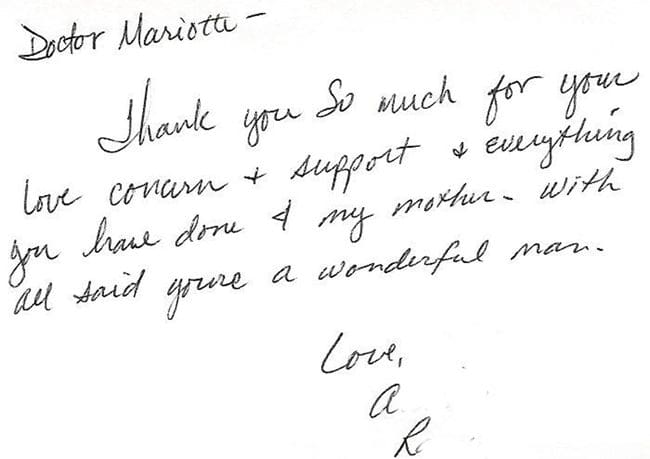 Doctor Mariotti -
Thank you So much for your
love concern + support & everything
you have done & my mother - With
all said youre a wonderful man.
Love,
A
R